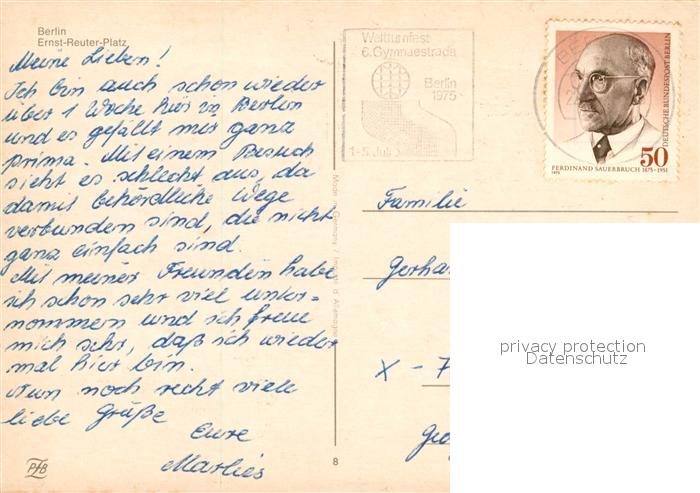 Berlin
Ernst-Reuter-Platz
Meine Lieben!
Ich bin auch schon wieder
über 1 Woche hier in Berlin
und es gefällt mir ganz
prima. Mit einem Besuch
sieht es schlecht aus, da
damit behördliche Wege
verbunden sind, die nicht
ganz einfach sind.
Mit meiner Freundin habe
ich schon sehr viel unter=
nommen und ich freue
mich sehr, daß ich wieder
mal hier bin.
Nun noch recht viele
liebe Grüße
Eure
Marlies
PFB
Made in Germany / Imprimé d'Allemagne
8
Weltturnfest
6. Gymnaestrada
Berlin
1975
1-5. Juli
BE
DEUTSCHE BUNDESPOST BERLIN
50
FERDINAND SAUERBRUCH 1875-1951
1975
Familie
Gerhar
X - 7
Geo
privacy protection
Datenschutz